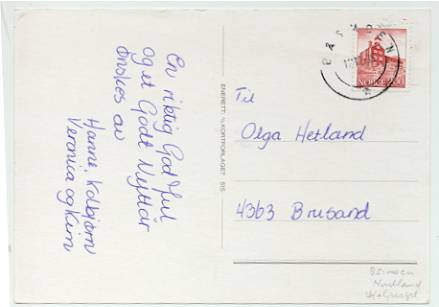 En riktig God Jul
og et Godt Nyttår
ønskes av
Hanne, Kolbjørn
Veronica og Kim
ENERETT: KORTFORLAGET
Til
Olga Hetland
4363 Brusand
Nordland